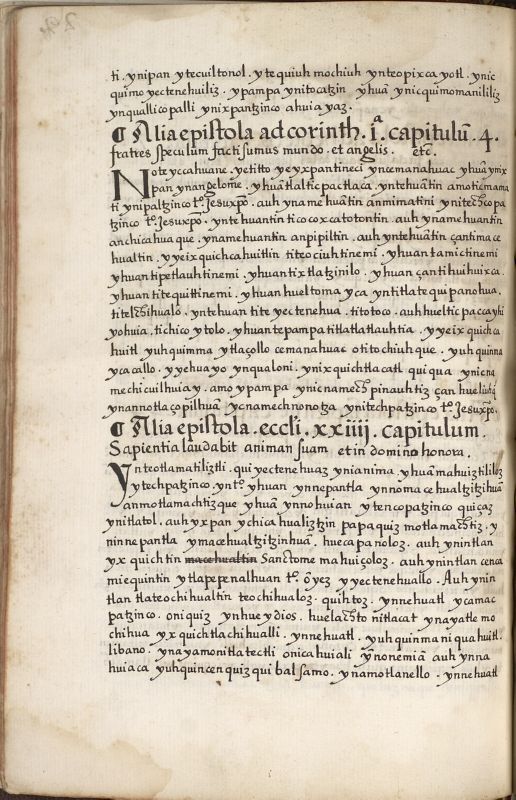 ti . ynipan ytecuiltonol . ytequiuh mochiuh ynteopixcayotl . ynic
quimo yectenehuiliz . ypampa ynitocatzin yhuã ynicquimomanililiz
ynquallicopalli ynixpantzinco ahuiayaz .
¶ Alia epistola ad corinth. 1.ª capitulũ . 4 .
fratres speculum facti sumus mundo . et angelis . etc.
Noteyccahuane . yetitto yeyxpantineci yncemanahuac yhuã ynix
pan ynangelome . yhuã tlalticpactlaca . yntehuãtin amoticmama
ti ynipaltzinco tº Jesuxpõ . auh yname huãtin anmimatini ynitechcopa
tzinco tº Jesuxpõ . yntehuantin ticocoxcatotontin . auh ynamehuantin
anchicahuaque . ynamehuantin anpipiltin . auh yntehuãtin çantimace
hualtin . yyeixquichcahuitlin titeociuhtinemi . yhuan tamictinemi
yhuan tipetlauhtinemi . yhuan tixtlatzinilo . yhuan çantihuihuixca .
yhuan titequittinemi . yhuan hueltoma yca yntitlatequipanohua .
titelchihualo . yntehuan tite yectenehua . titotoco . auh huelticpaccayhi
yohuia . tichicoytolo . yhuan tepampa titlatlatlauhtia . yyeixquichca
huitl yuhquimma ytlaçollo cemanahuac otitochiuhque . yuhquinna
ycacallo . yyehuayo ynqualoni . ynixquichtlacatl quiqua ynicna
mechicuilhuia y . amo ypampa ynicnamech pinauhtiz çan
ynannotlaçopilhuã ycnamechnonotza ynitechpatzinco tº Jesuxpõ .
¶ Alia epistola . eccli . xxiiij . capitulum .
Sapientia laudabit animan suam et in domino honora .
Yntetlamatiliztli . quiyectenehuaz ynianima yhuã mahuiztililoz
ytechpatzinco . yntº yhuan ynnepantla ynnomacehualtzitzihuã
anmotlamachtizque yhuã ynnohuian ytencopatzinco quiçaz
ynitlatol . auh yxpan ychicahualiztzin papaquiz motlamachtiz . y
ninnepantla ymacehualtzitzinhuã . huecapanoloz . auh ynintlan
yxquichtin macehualtin Sanctome mahuiçoloz . auh ynintlan cenca
miequintin ytlapepenalhuan tº õyez yyectenehuallo . Auh ynin
tlan tlateochihualtin teochihualoz . quihtoz . ynnehuatl ycamac
patzinco . oniquiz ynhueydios . huelachto nitlacat ynayatle mo
chihua yxquichtlachihualli . ynnehuatl . yuhquinma niquahuitl .
libano . ynayamonitlatectli onicahuiali ynnonemiã auh ynna
huiaca yuhquincenquizqui balsamo . ynamotlanello . ynnehuatl